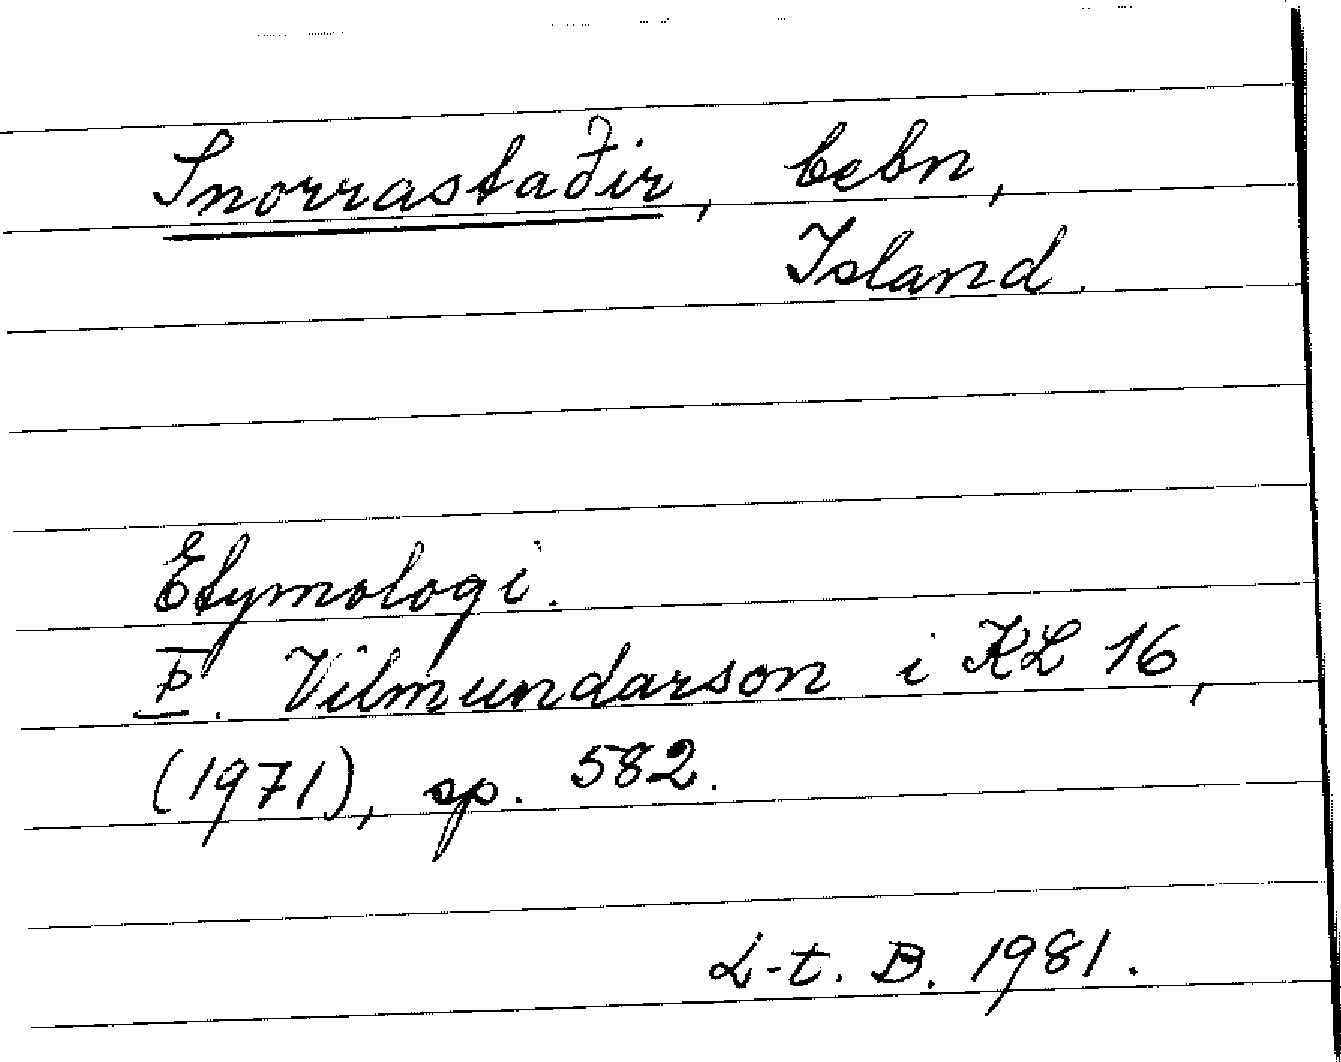 Snorrastaðir, bebn,
Island.
Etymologi.
Þ. Vilmundarson i KL 16,
(1971), sp. 582.
L-t. B. 1981.